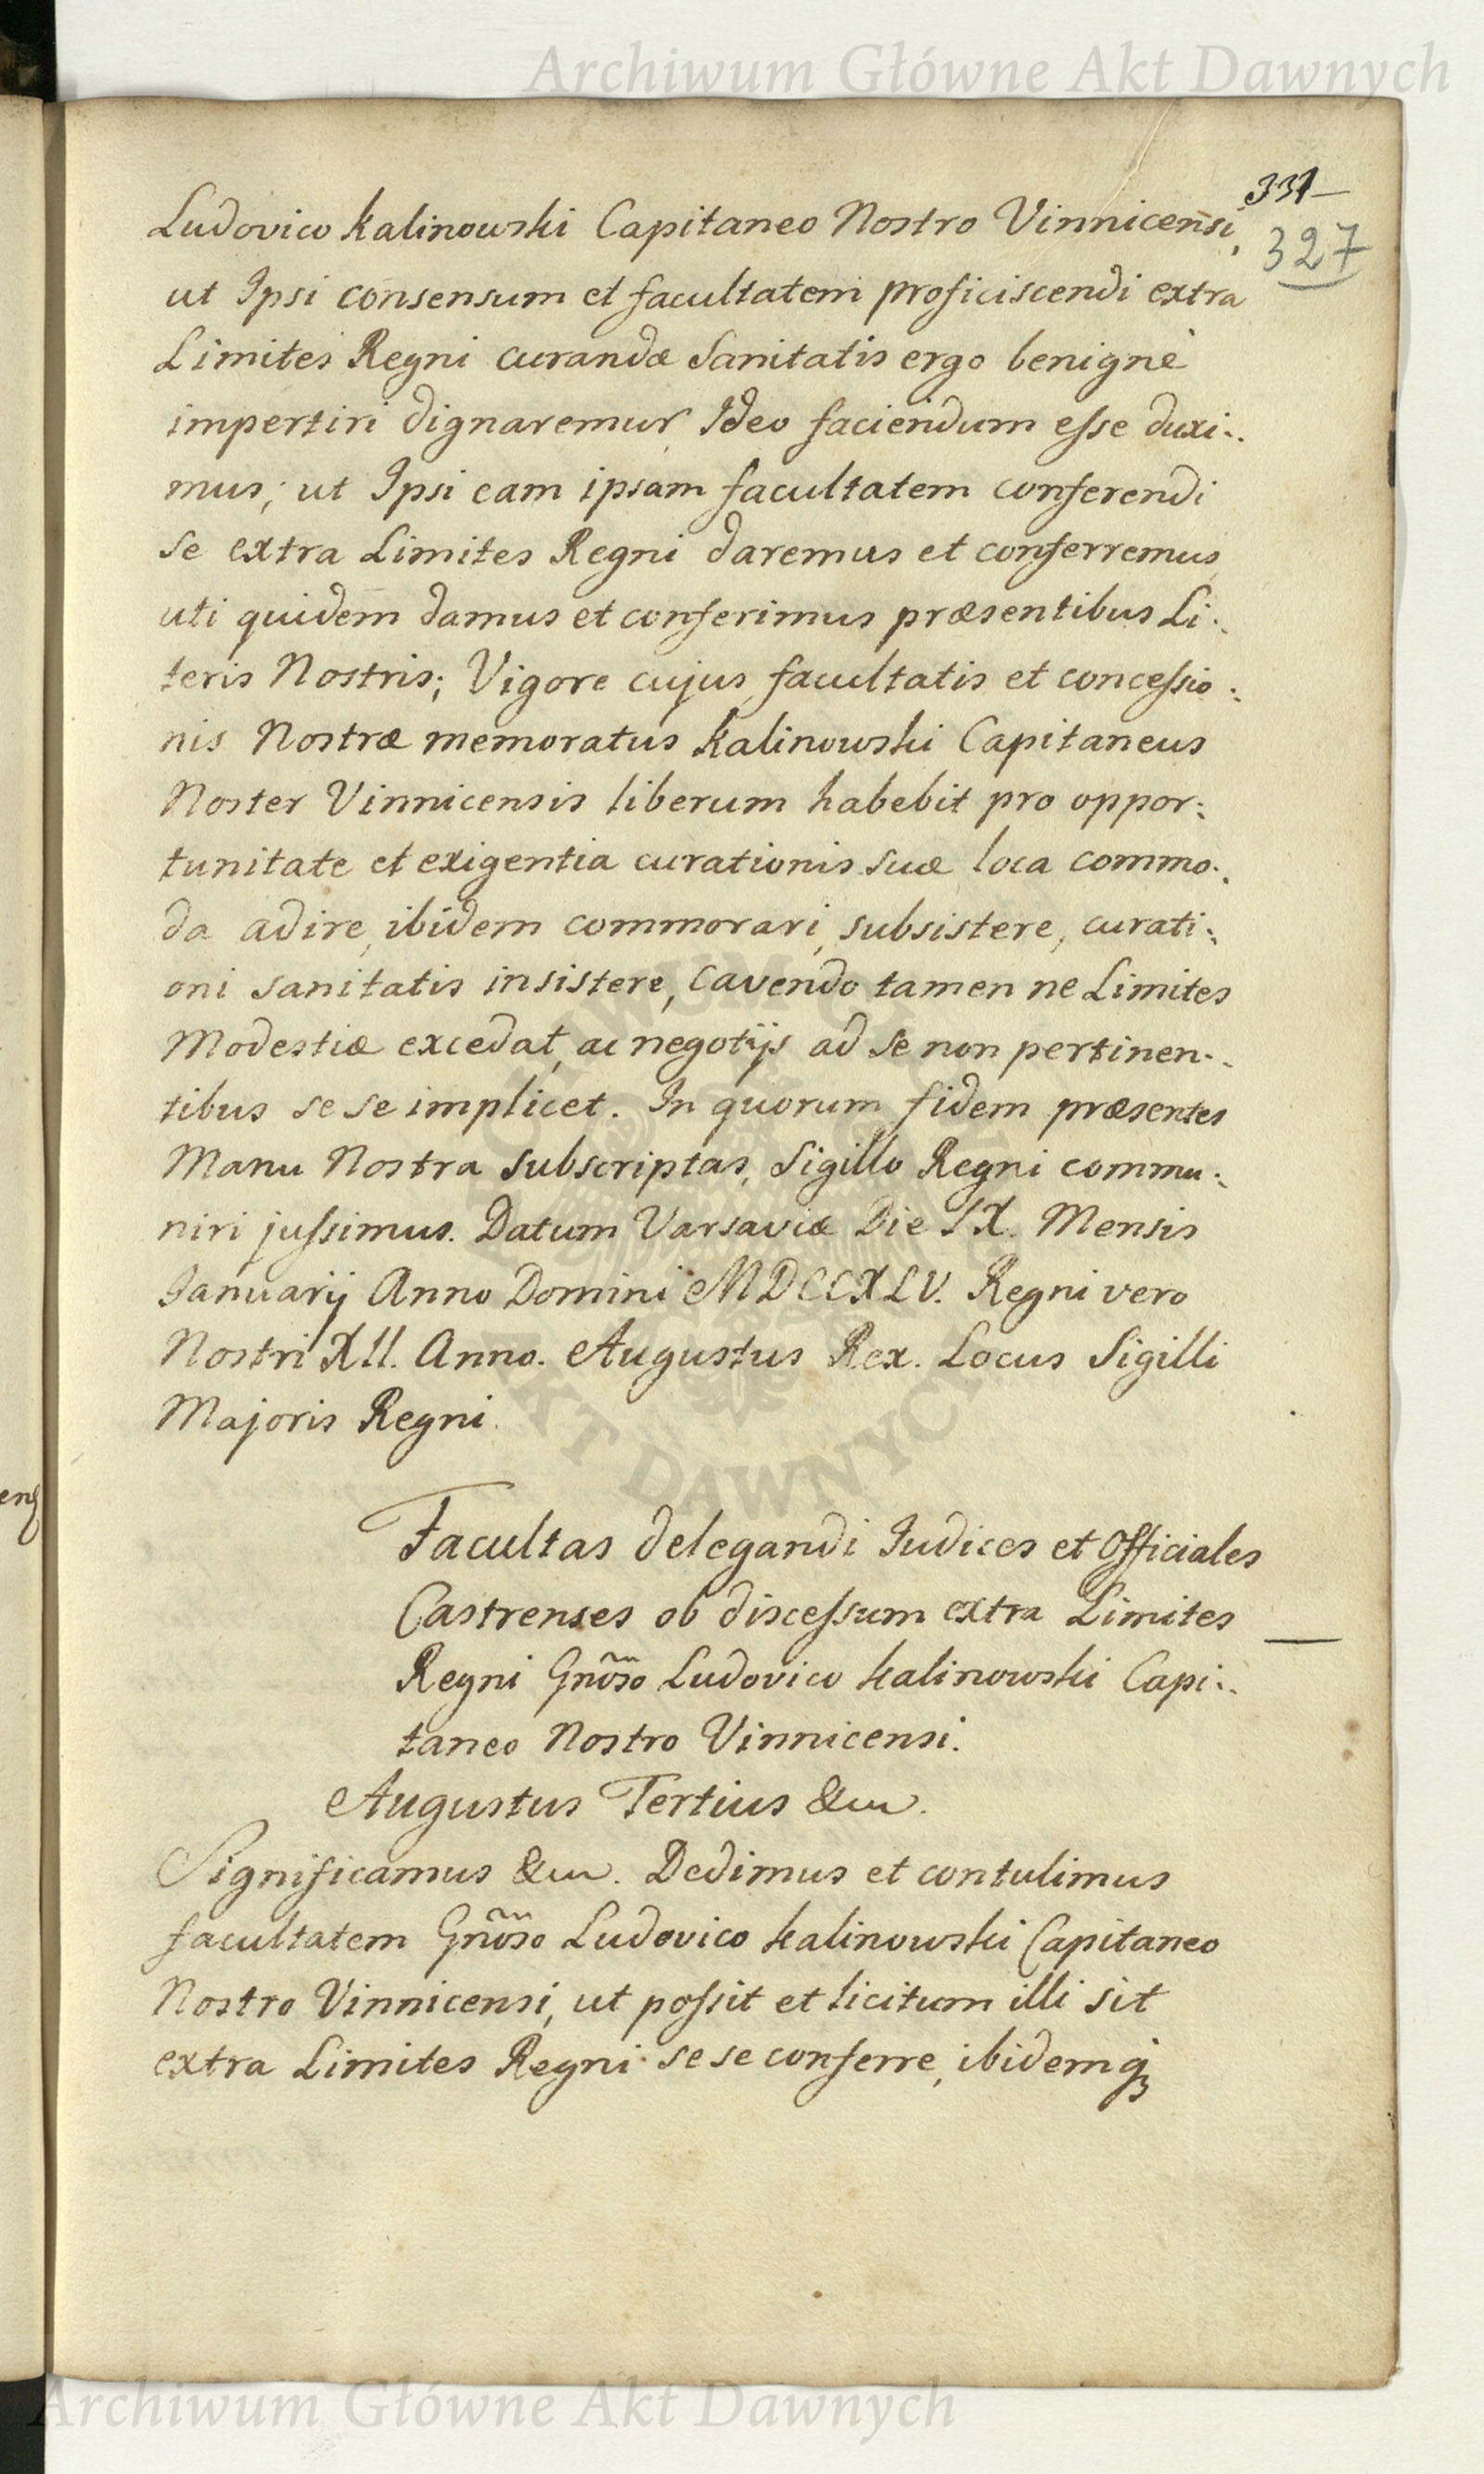 Archiwum Główne Akt Dawnych
331
327
Ludovico Kalinowski Capitaneo Nostro Vinnicensi,
ut Ipsi consensum et facultatem proficiscendi extra
Limites Regni curandæ Sanitatis ergo benignè
impertiri dignaremur Ideo faciendum eſse duxi:
mus; ut Ipsi eam ipsam facultatem conferendi
se extra Limites Regni daremus et conferremus
uti quidem damus et conferimus præsentibus Li:
teris Nostris; Vigore cujus facultatis et conceſsio:
nis Nostræ memoratus Kalinowski Capitaneus
Noster Vinnicensis liberum habebit pro oppor:
tunitate et exigentia curationis suæ loca commo:
da adire, ibidem commorari, subsistere, curati:
oni sanitatis insistere, cavendo tamen ne Limites
Modestiæ excedat, ac negotijs ad se non pertinen:
tibus se se implicet. In quorum fidem præsentes
Manu Nostra subscriptas, Sigillo Regni commu:
niri juſsimus. Datum Varsaviæ Die IX. Mensis
Ianuarij Anno Domini MDCCXLV. Regni vero
Nostri XII. Anno. Augustus Rex. Locus Sigilli
Majoris Regni.
Facultas delegandi Iudices et Officiales
Castrenses ob disceſsum extra Limites
Regni Gnõso Ludovico Kalinowski Capi:
taneo Nostro Vinnicensi.
Augustus Tertius &cc.
Significamus &cc. Dedimus et contulimus
facultatem Gnõso Ludovico Kalinowski Capitaneo
Nostro Vinnicensi, ut poſsit et licitum illi sit
extra Limites Regni se se conferre, ibidemq;
Archiwum Główne Akt Dawnych